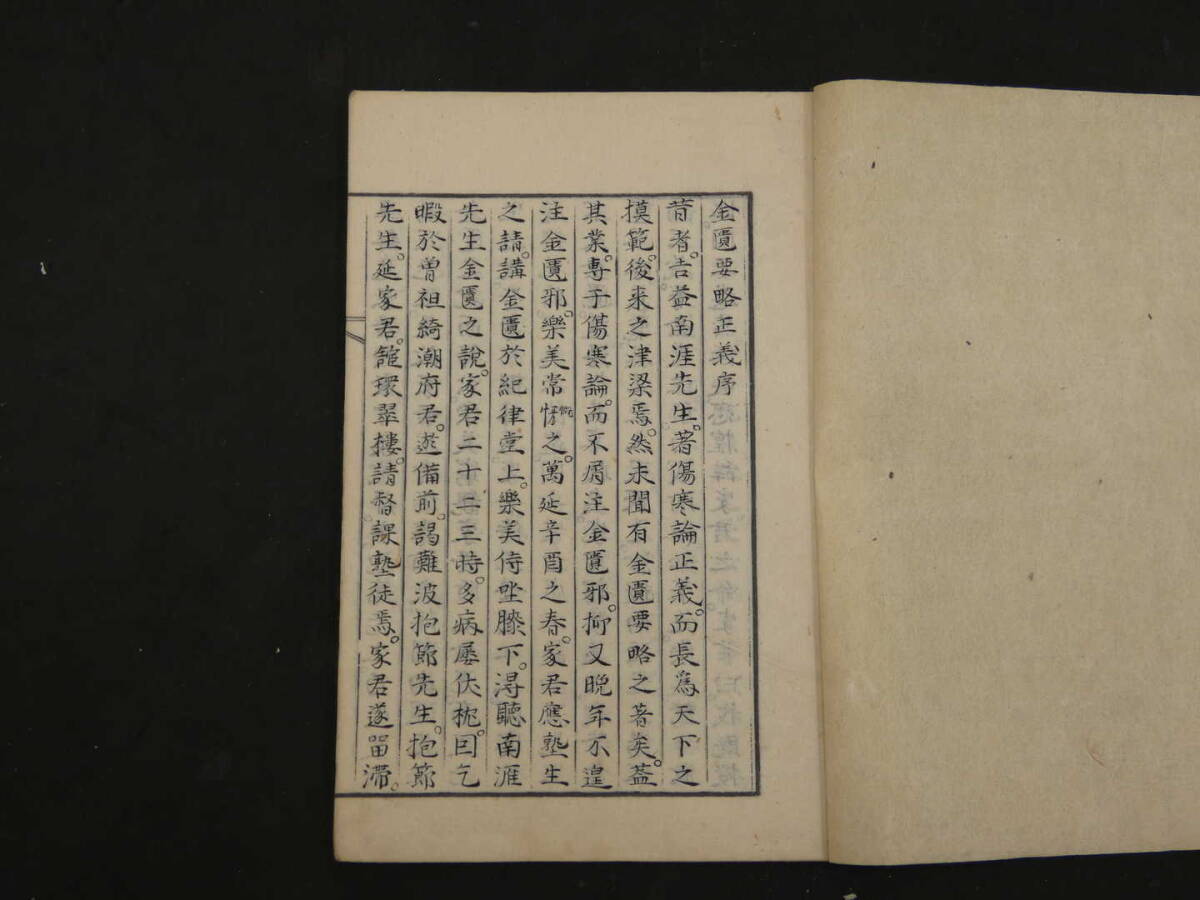 金匱要略正義序
昔者。吉益南涯先生。著傷寒論正義。而長爲天下之
摸範。後来之津梁焉。然未聞有金匱要略之著矣。蓋
其業。專于傷寒論。而不屑注金匱邪。抑又晩年不遑
注金匱邪。樂美常怪之。萬延辛酉之春。家君應塾生
之請。講金匱於紀律堂上。樂美侍坐膝下。淂聽南涯
先生金匱之說。家君二十二三時。多病屢伏枕。因乞
暇於曽祖綺潮府君。遊備前。謁難波抱節先生。抱節
先生。延家君。舘環翠樓。請督課塾徒焉。家君遂留滯。